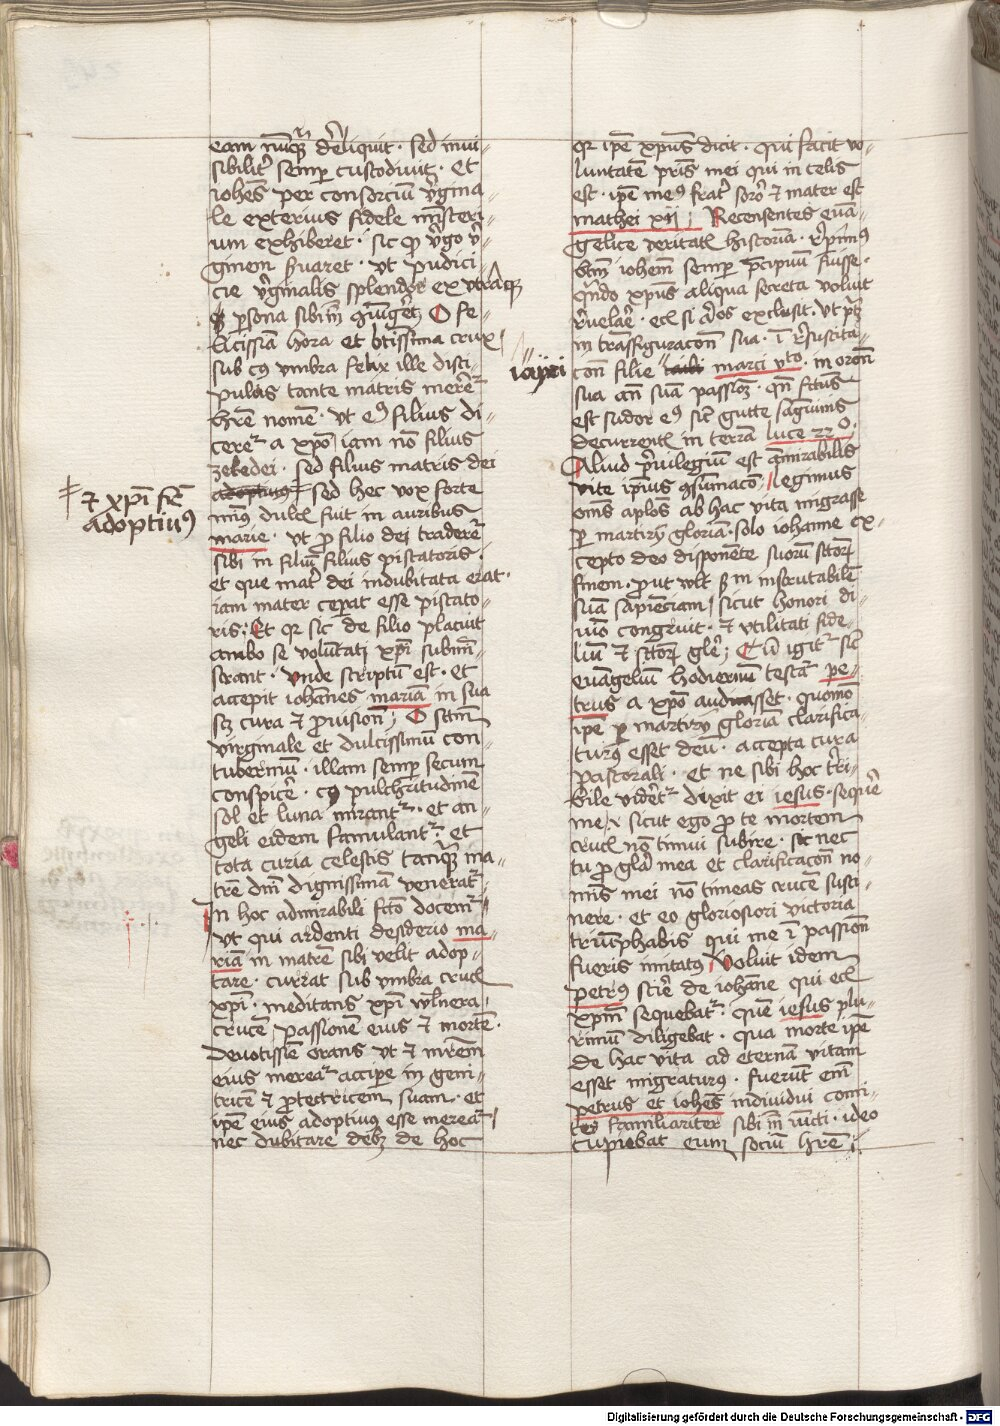 eam nūq̄ȝ dẽliquit · sed inui-
sibilitˀ semꝑ custodiuit · Et
iohēs per consorciū vˀgina-
le exterius fidele mīsteri-
um exhiberet · sic ꝙ vˀgo vˀ-
ginem ẜuaret · vt pudici-
cie vˀginalis splendor ex vtraqȝ
ꝑsona sibīm ꝯiūgˀetˀ O fe-
licissīa hora et btīssima crux
sub cꝰ vmbra felix ille disci-
pulus tante matris merẽtˀ
hr̄e nomē · vt eꝰ filius di-
ceretˀ a xp̄o iam nō filius
zebedei · sed filius matris dei
adoptiuus sed hec vox forte
nimꝰ dulcꝭ fuit in auribus
marie · vt ꝓ filio dei traderetˀ
sibi in filiū filius piscatoris ·
et que matˀ dei indubitata erat ·
iam mater ceperat esse piscato-
ris : Et qꝛ sic de filio placuit
ambo se volūtati xp̄i submī-
serant · vnde scriptū est · et
accepit iohānes mariā in sua
sꝫ cura et ꝓuisionē O sctm̄
virginale et dulcissimū con-
tuberniū · illam semꝑ secum
conspicẽ · cꝰ pulchˀtudinē
sol et luna mirantˀ · et an-
geli eidem famulantˀ · et
tota curia celestis tanq̄ȝ ma-
trē dn̄i dignissimā veneratˀ
In hoc admirabili fcō docemˀ
vt qui ardenti desiderio ma-
riā in matrē sibi velit adop-
tare · currat sub vmbra crucꝭ
xp̄i · meditans xp̄i vlˀnera
crucē passionē eius et mortē ·
Deuotissīe orans vt et mr̄em
eius mereatˀ accipe in geni-
tricē et ꝓtectricem suam · et
ipē eius adoptiuus esse mereatˀ
nec dubitare debȝ de hoc
≠ et xp̄i fr̄
adoptiuꝰ
qꝛ ipē xp̄us dicit · Qui facit vo-
luntatē pr̄is mei qui in celis
est · ipē meꝰ fratˀ sorō et mater est
mathei xij Recensentes euā-
gelice veritatꝭ historiā · rˀpimꝰ
btm̄ iohēm semꝑ p̄cipuū fuisse ·
qn̄do xp̄us aliqua secreta voluit
rˀuelar̄e · ecꝭ si ad̄os exclusit · vt ptȝ
in trāsfiguracōn sua · ī rˀsuscita-
iayri
con̄ filie marci vᵗᵒ · in orōn
sua an̄ suā passionȝ · qn̄ fctūs
est sudor eꝰ sicˀ gutte sāguinis
decurrentꝭ in terrā luce 22°
Aliud pˀuilegiū est āmirabilis
vite ipīus ꝯsumacō legimus
om̄s aplos ab hac vita migrasse
ꝑ martiry gloriā · solo iohanne ex-
cepto deo disponēte suorū sctōrꝝ
finem · ꝓut vult ẜm inscrutabilē
suā sapienciam sicut honori di-
uīo congruit · et vtilitati fide-
liū et sctōrꝝ glẽ Cū igitˀ sicˀ
euāgeliū hodiernū testatˀ pe-
trus a xp̄o audiasset · quomō
ipē ꝑ martiry gloriā clarifica-
turꝰ esset deū · accepta cura
pastorali · et ne sibi hoc trˀi-
bile vidẽtˀ dixit ei iesus · seq̄re
me · sicut ego ꝓ te mortem
crucꝭ nō timui subire · sic nec
tu ꝓ glā mea et clarificacōn no-
mīs mei nō timeas crucē susci-
nere · et eo gloriosiori victoria
triūphabis qui me ī passion̄
fueris imitatꝰ Voluit idem
petrꝰ scirē de iohāne qui ecꝭ
xp̄m sequebatˀ · quē iesus plu-
rimū diligebat · qua morte ipē
de hac vita ad eternā vitam
esset migraturꝰ · fuerūt em̄
petrus et iohēs indiuidui comi-
tes familiariter sibi īm iūcti · ideo
cupiebat eum sociū hr̄e
Digitalisierung gefördert durch die Deutsche Forschungsgemeinschaft · DFG